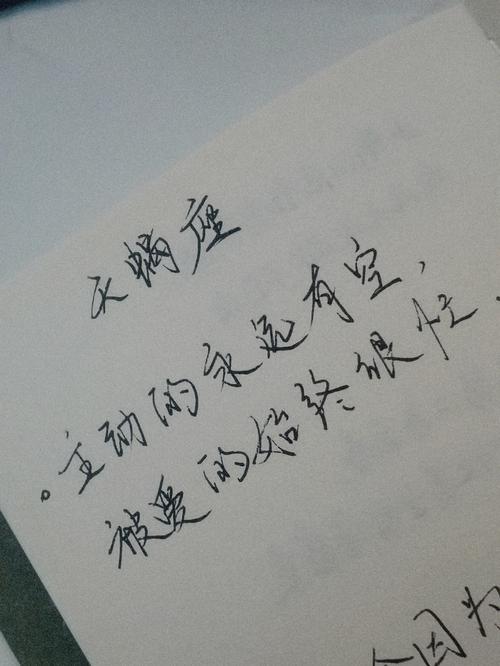 天蝎座
。主动的永远有空，
被爱的始终很忙.
因为